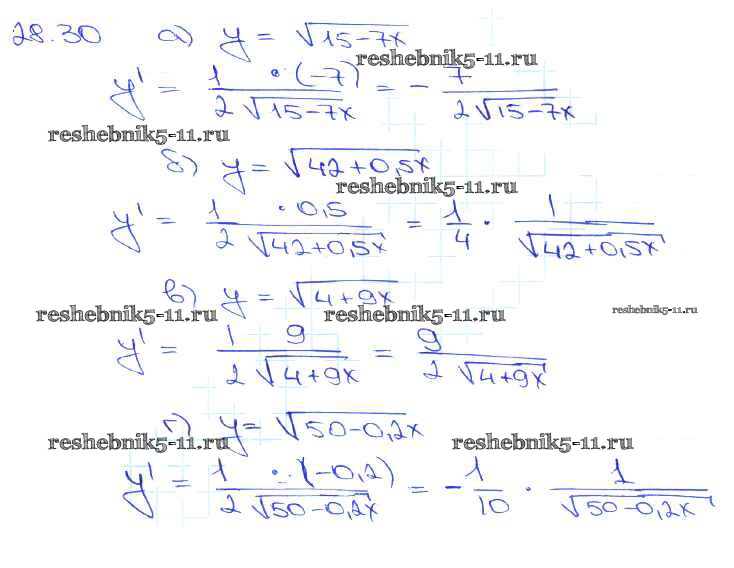 28.30 а) y = √15-7x
reshebnik5-11.ru
y' = 1 · (-7) / 2√15-7x = - 7 / 2√15-7x
reshebnik5-11.ru
б) y = √42+0,5x
reshebnik5-11.ru
y' = 1 · 0,5 / 2√42+0,5x = 1/4 · 1 / √42+0,5x
в) y = √4+9x
reshebnik5-11.ru reshebnik5-11.ru reshebnik5-11.ru
y' = 1 9 / 2√4+9x = 9 / 2√4+9x
г) y = √50-0,2x
reshebnik5-11.ru reshebnik5-11.ru
y' = 1 · (-0,2) / 2√50-0,2x = - 1/10 · 1 / √50-0,2x